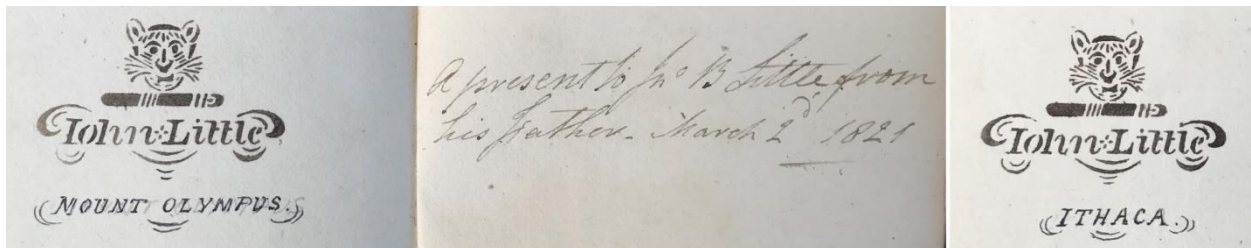 Iohn Little
MOUNT OLYMPUS.
A present to Jno B Little from
his father - March 2d 1821
Iohn Little
ITHACA.